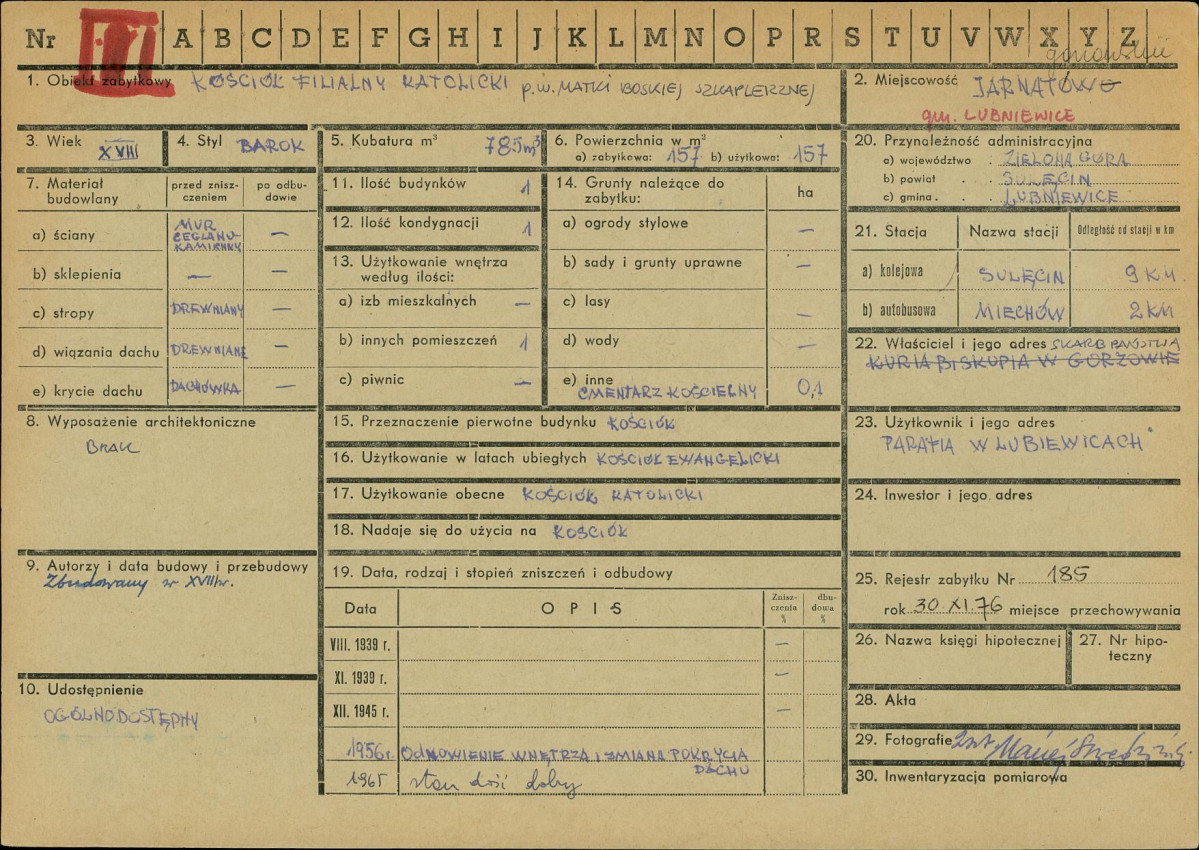 Nr A B C D E F G H I J K L M N O P R S T U V W X Y Z
gorzowskie
1. Obiekt zabytkowy KOŚCIÓŁ FILIALNY KATOLICKI p.w. MATKI BOSKIEJ SZKAPLERZNEJ
2. Miejscowość JARNATOWO
gm. LUBNIEWICE
3. Wiek XVIII
4. Styl BAROK
5. Kubatura m³ 785 m³
6. Powierzchnia w m²
a) zabytkowa: 157 b) użytkowa: 157
7. Materiał budowlany
przed zniszczeniem
po odbudowie
a) ściany MUR CEGLANO-KAMIENNY —
b) sklepienia — —
c) stropy DREWNIANY —
d) wiązania dachu DREWNIANE —
e) krycie dachu DACHÓWKA —
8. Wyposażenie architektoniczne
BRAK
9. Autorzy i data budowy i przebudowy
Zbudowany w XVIII w.
10. Udostępnienie
OGÓLNODOSTĘPNY
11. Ilość budynków 1
12. Ilość kondygnacji 1
13. Użytkowanie wnętrza
według ilości:
a) izb mieszkalnych —
b) innych pomieszczeń 1
c) piwnic —
14. Grunty należące do
zabytku:
ha
a) ogrody stylowe —
b) sady i grunty uprawne —
c) lasy —
d) wody —
e) inne
CMENTARZ KOŚCIELNY 0,1
15. Przeznaczenie pierwotne budynku KOŚCIÓŁ
16. Użytkowanie w latach ubiegłych KOŚCIÓŁ EWANGELICKI
17. Użytkowanie obecne KOŚCIÓŁ KATOLICKI
18. Nadaje się do użycia na KOŚCIÓŁ
19. Data, rodzaj i stopień zniszczeń i odbudowy
Data OPIS Zniszczenia % dbudowa %
VIII. 1939 r. —
XI. 1939 r. —
XII. 1945 r. —
1956 r. ODNOWIENIE WNĘTRZA I ZMIANA POKRYCIA
DACHU
1965 stan dość dobry
20. Przynależność administracyjna
a) województwo . ZIELONA GÓRA
b) powiat . . SULĘCIN
c) gmina . . LUBNIEWICE
21. Stacja Nazwa stacji Odległość od stacji w km
a) kolejowa SULĘCIN 9 KM
b) autobusowa MIECHÓW 2 KM
22. Właściciel i jego adres SKARB PAŃSTWA
KURIA BISKUPIA W GORZOWIE
23. Użytkownik i jego adres
PARAFIA W LUBIEWICACH
24. Inwestor i jego adres
25. Rejestr zabytku Nr 185
rok 30.XI.76 miejsce przechowywania
26. Nazwa księgi hipotecznej
27. Nr hipoteczny
28. Akta
29. Fotografie Maciej
30. Inwentaryzacja pomiarowa